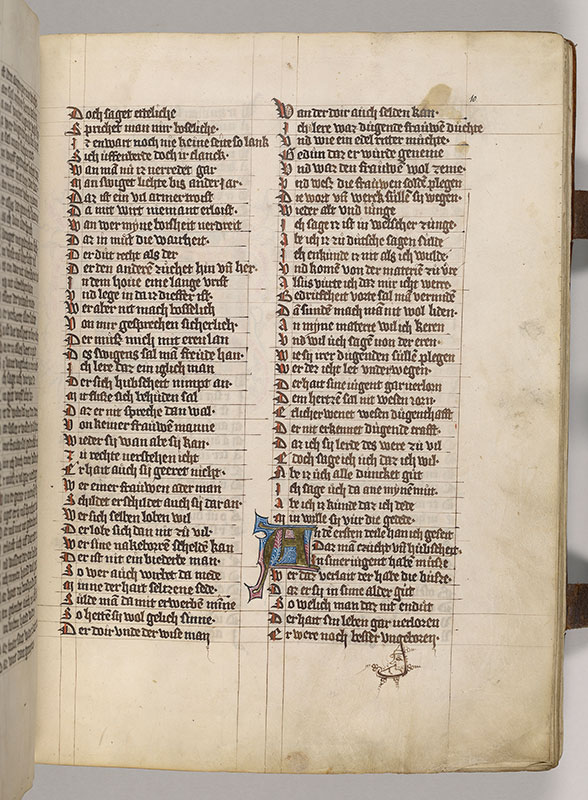 10
Doch saget etteliche
Sprichet man mir boseliche
Iz enwart noch nie keine seite so lank
Sich uffenberde doch ir clanck.
Wan ma nu iz verredet gar
Man swiget lichte biz ander Jar.
Daz ist ein vil armer trost
Da mit wirt niemant erlost.
Wan wer myne bosheit verdreit
Daz in muß die warheit.
Der dut recht als der
Der den andere zuchet hin vn her.
In dem hove eine lange vrist
Vnd lege in da iz dieffer ist.
Wer aber nit mach boslich
Von mir gesprechen sicherlich.
Der muß mich mit eren lan
Des swigens sal ma freude han.
Ich lere daz ein iglich man
Der sich hubscheit nimpt an.
Mit flise sich behuden sal
Daz er nit spreche dan wal.
Von keiner frauwen manne
Wieder sy wan abe sy kan.
Zu rechte verstehen icht
Er hait auch sij geeret nicht.
Wer einer frauwen ader man
Schildet er schildet auch sij dar an.
Wer sich selben loben wil
Der lose sich dan nit zu vil.
Wer sine nakeboren schelde kan
Der ist nit ein biederbe man.
So wer auch wirbet da mede
Minne der hait seltzene sede.
Sulde man da mit erwerben minne
So hetten sij wol gelich sinne.
Der doir vnde der wise man
Wan der doir auch selden kan.
Ich lere waz dugende frauwen duchte
Vnd wie ein edel ritter muchte.
Gedun daz er wurde geneme
Vnd waz den frauwen wol zeme.
Vnd weß die frauwen solde plegen
Die wort vn werck sulle sij wegen.
Wieder alt vnd iunge
Ich sage iz ist in welscher zunge.
Abe ich iz zu dutsche sagen sulde
Ich enkunde iz nit als ich wulde.
Vnd kome von der materien zu vre
Alsus vurte ich daz mir icht werre.
Bedruckheit vorte sal ma vermide
Da sunde mach ma nit wol liden.
An myne materie wil ich keren
Vnd wil uch sagen von der eren.
Wie sij irer dugenden sullen plegen
Wer dez icht let vnderwegen.
Der hait sine iugent gar verlorn
Dem hertze sal nit wesen zorn.
Etlicher wenet wesen dugenthafft
Der nit erkennet dugende crafft.
Daz ich sij lerde des were zu vil
Edoch sage ich uch daz ich wil.
Abe iz uch alle duncket gut
Ich sage uch da ane mynen mut.
Abe ich iz kunde daz ich dede
Min wille sij vur die gerede.
An de ersten deile han ich geseit
Daz ma czucht vn hubscheit.
In siner iugent habe musse
Wer daz verlait der habe die busse.
Daz er sij in sime alder gut
So welich man daz nit endut
Der hait sin leben gar verloren
Er were noch besser vngeboren.